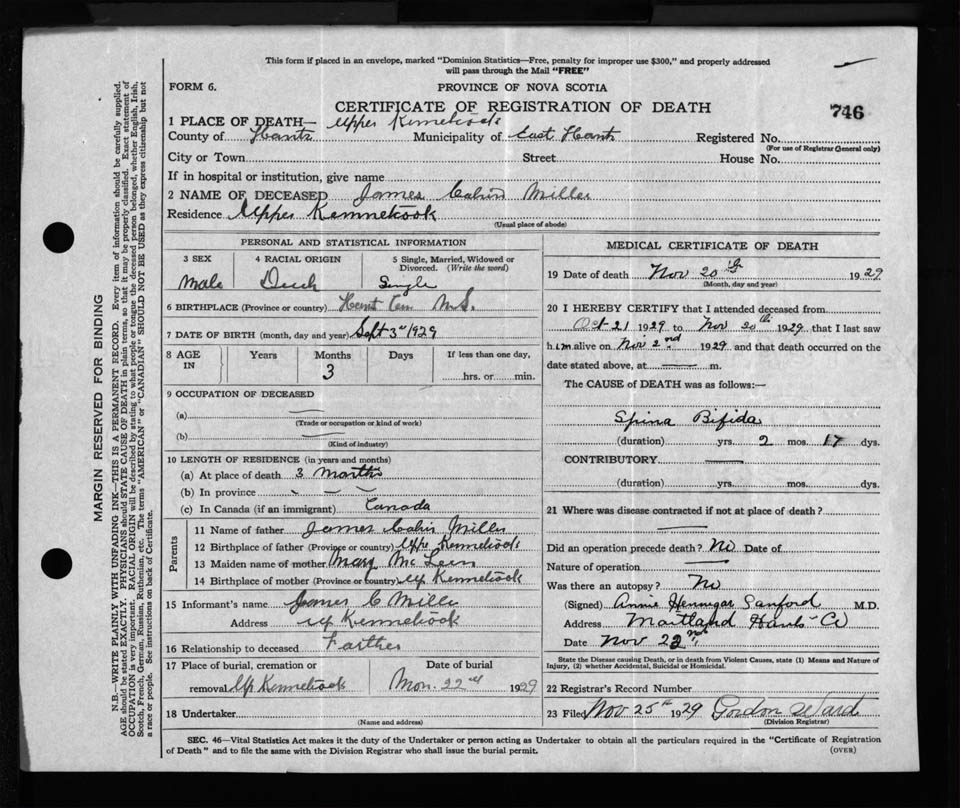 This form if placed in an envelope, marked "Dominion Statistics—Free, penalty for improper use $300," and properly addressed
will pass through the Mail "FREE"
FORM 6.
PROVINCE OF NOVA SCOTIA
CERTIFICATE OF REGISTRATION OF DEATH
746
1 PLACE OF DEATH— Upper Kennetcook
County of Hants Municipality of East Hants Registered No.
(For use of Registrar General only)
City or Town Street House No.
If in hospital or institution, give name
2 NAME OF DECEASED James Calvin Miller
Residence Upper Kennetcook
(Usual place of abode)
PERSONAL AND STATISTICAL INFORMATION
3 SEX 4 RACIAL ORIGIN 5 Single, Married, Widowed or
Divorced. (Write the word)
Male Single
6 BIRTHPLACE (Province or country) Hant N.S.
7 DATE OF BIRTH (month, day and year) Sept 3rd 1929
8 AGE IN Years Months Days If less than one day,
3 hrs. or min.
9 OCCUPATION OF DECEASED
(a) —
(Trade or occupation or kind of work)
(b) —
(Kind of industry)
10 LENGTH OF RESIDENCE (in years and months)
(a) At place of death 3 Months
(b) In province
(c) In Canada (if an immigrant) Canada
Parents
11 Name of father James Miller
12 Birthplace of father (Province or country) Kennetcook
13 Maiden name of mother Mary
14 Birthplace of mother (Province or country) Up Kennetcook
15 Informant's name James C Mille
Address Up Kennetcook
16 Relationship to deceased Farther
17 Place of burial, cremation or Date of burial
removal Up Kennetcook 22nd 1929
18 Undertaker
(Name and address)
MEDICAL CERTIFICATE OF DEATH
19 Date of death Nov 20th 1929
(Month, day and year)
20 I HEREBY CERTIFY that I attended deceased from
Oct 21 1929 to Nov 20th 1929 that I last saw
him alive on Nov 2nd 1929 and that death occurred on the
date stated above, at — m.
The CAUSE of DEATH was as follows:—
Spina Bifida
(duration) yrs. 2 mos. 17 dys.
CONTRIBUTORY —
(duration) yrs. mos. dys.
21 Where was disease contracted if not at place of death?
—
Did an operation precede death? No Date of
Nature of operation —
Was there an autopsy? No
(Signed) Annie Hennigar Sanford M.D.
Address Maitland Hants
Date Nov 22nd
State the Disease causing Death, or in death from Violent Causes, state (1) Means and Nature of
Injury, (2) whether Accidental, Suicidal or Homicidal.
22 Registrar's Record Number
23 Filed Nov 25th 1929 Gordon Ward
(Division Registrar)
SEC. 46—Vital Statistics Act makes it the duty of the Undertaker or person acting as Undertaker to obtain all the particulars required in the "Certificate of Registration
of Death" and to file the same with the Division Registrar who shall issue the burial permit.
(OVER)
MARGIN RESERVED FOR BINDING
N.B.—WRITE PLAINLY WITH UNFADING INK—THIS IS A PERMANENT RECORD. Every item of information should be carefully supplied.
AGE should be stated EXACTLY. PHYSICIANS should STATE CAUSE OF DEATH in plain terms, so that it may be properly classified. Exact statement of
OCCUPATION is very important. RACIAL ORIGIN will be described by stating to what people or tongue the deceased person belonged, whether English, Irish,
Scotch, French, German, Russian, Ruthenian, etc. The terms "AMERICAN" or "CANADIAN" SHOULD NOT BE USED as they express citizenship but not
a race or people. See instructions on back of Certificate.